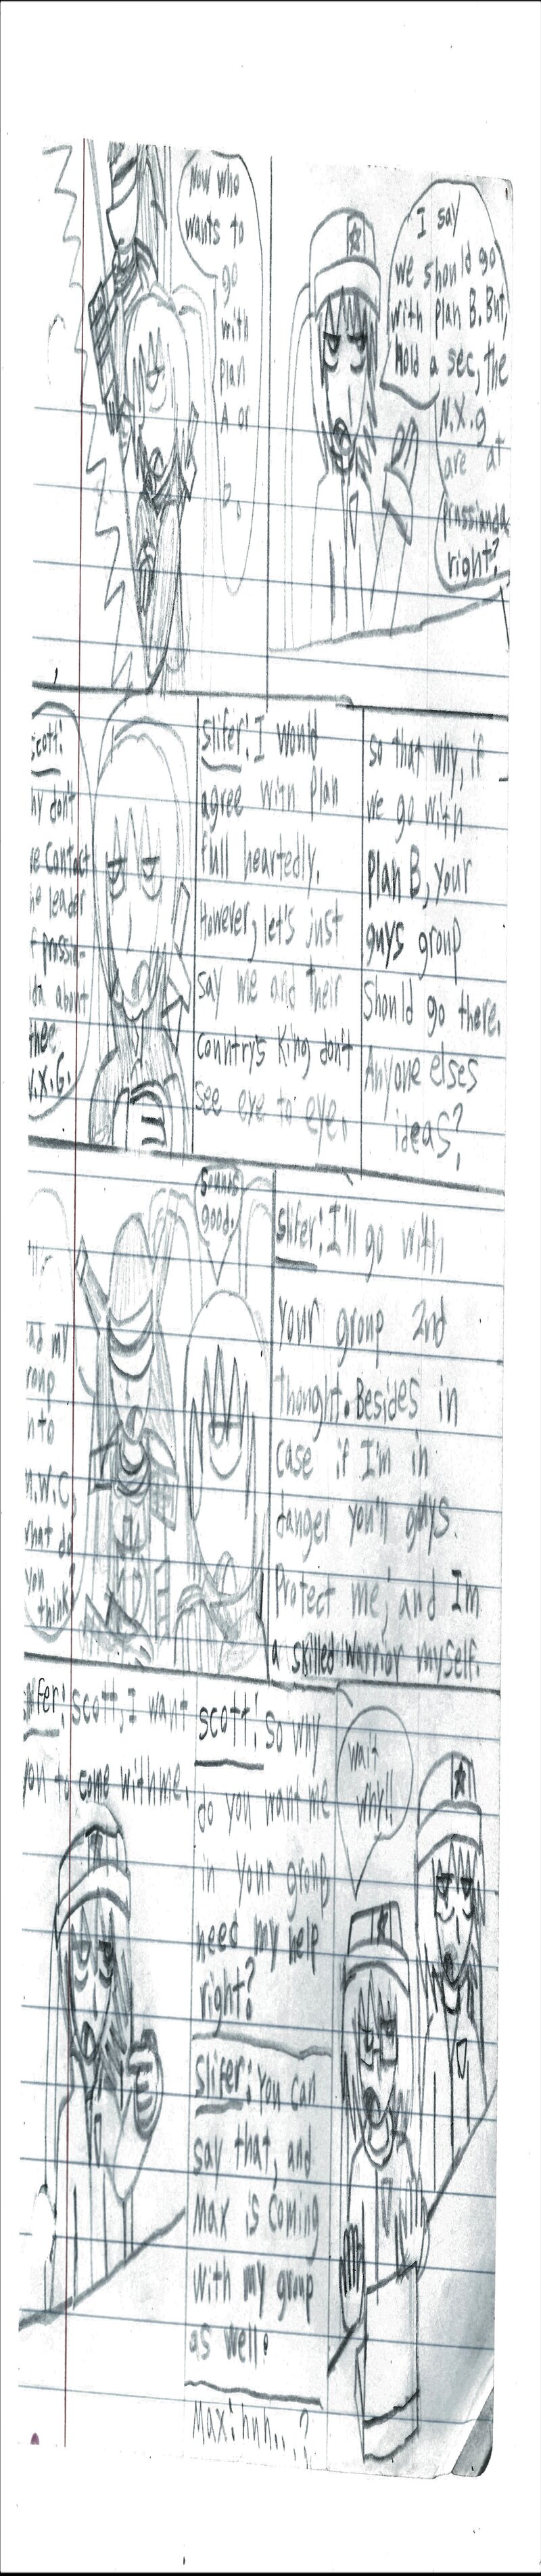 Now who
wants to
go
with
plan
A or
b.
I say
we should go
with plan B. But,
Hold a sec, the
N.X.g
are at
prassianda
right?
scott:
hy don't
we contact
he leader
f prassia-
da about
thee
N.X.G.
slifer: I would
agree with plan
full heartedly.
However, let's just
say me and their
country's King don't
see eye to eye.
so that why, if
we go with
Plan B, your
guys group
Should go there.
Anyone elses
ideas?
ad my
roup
nto
N.W.C,
what do
you
think?
Sounds
good.
slifer: I'll go with
your group 2nd
thought. Besides in
case if I'm in
danger you'll guys.
Protect me, and I'm
a skilled warrior myself.
ifer: scott, I want
you to come with me.
scott: so why
do you want me
in your group
need my help
right?
slifer: You can
say that, and
Max is coming
with my group
as well.
Max: hnh...?
wait
why!!